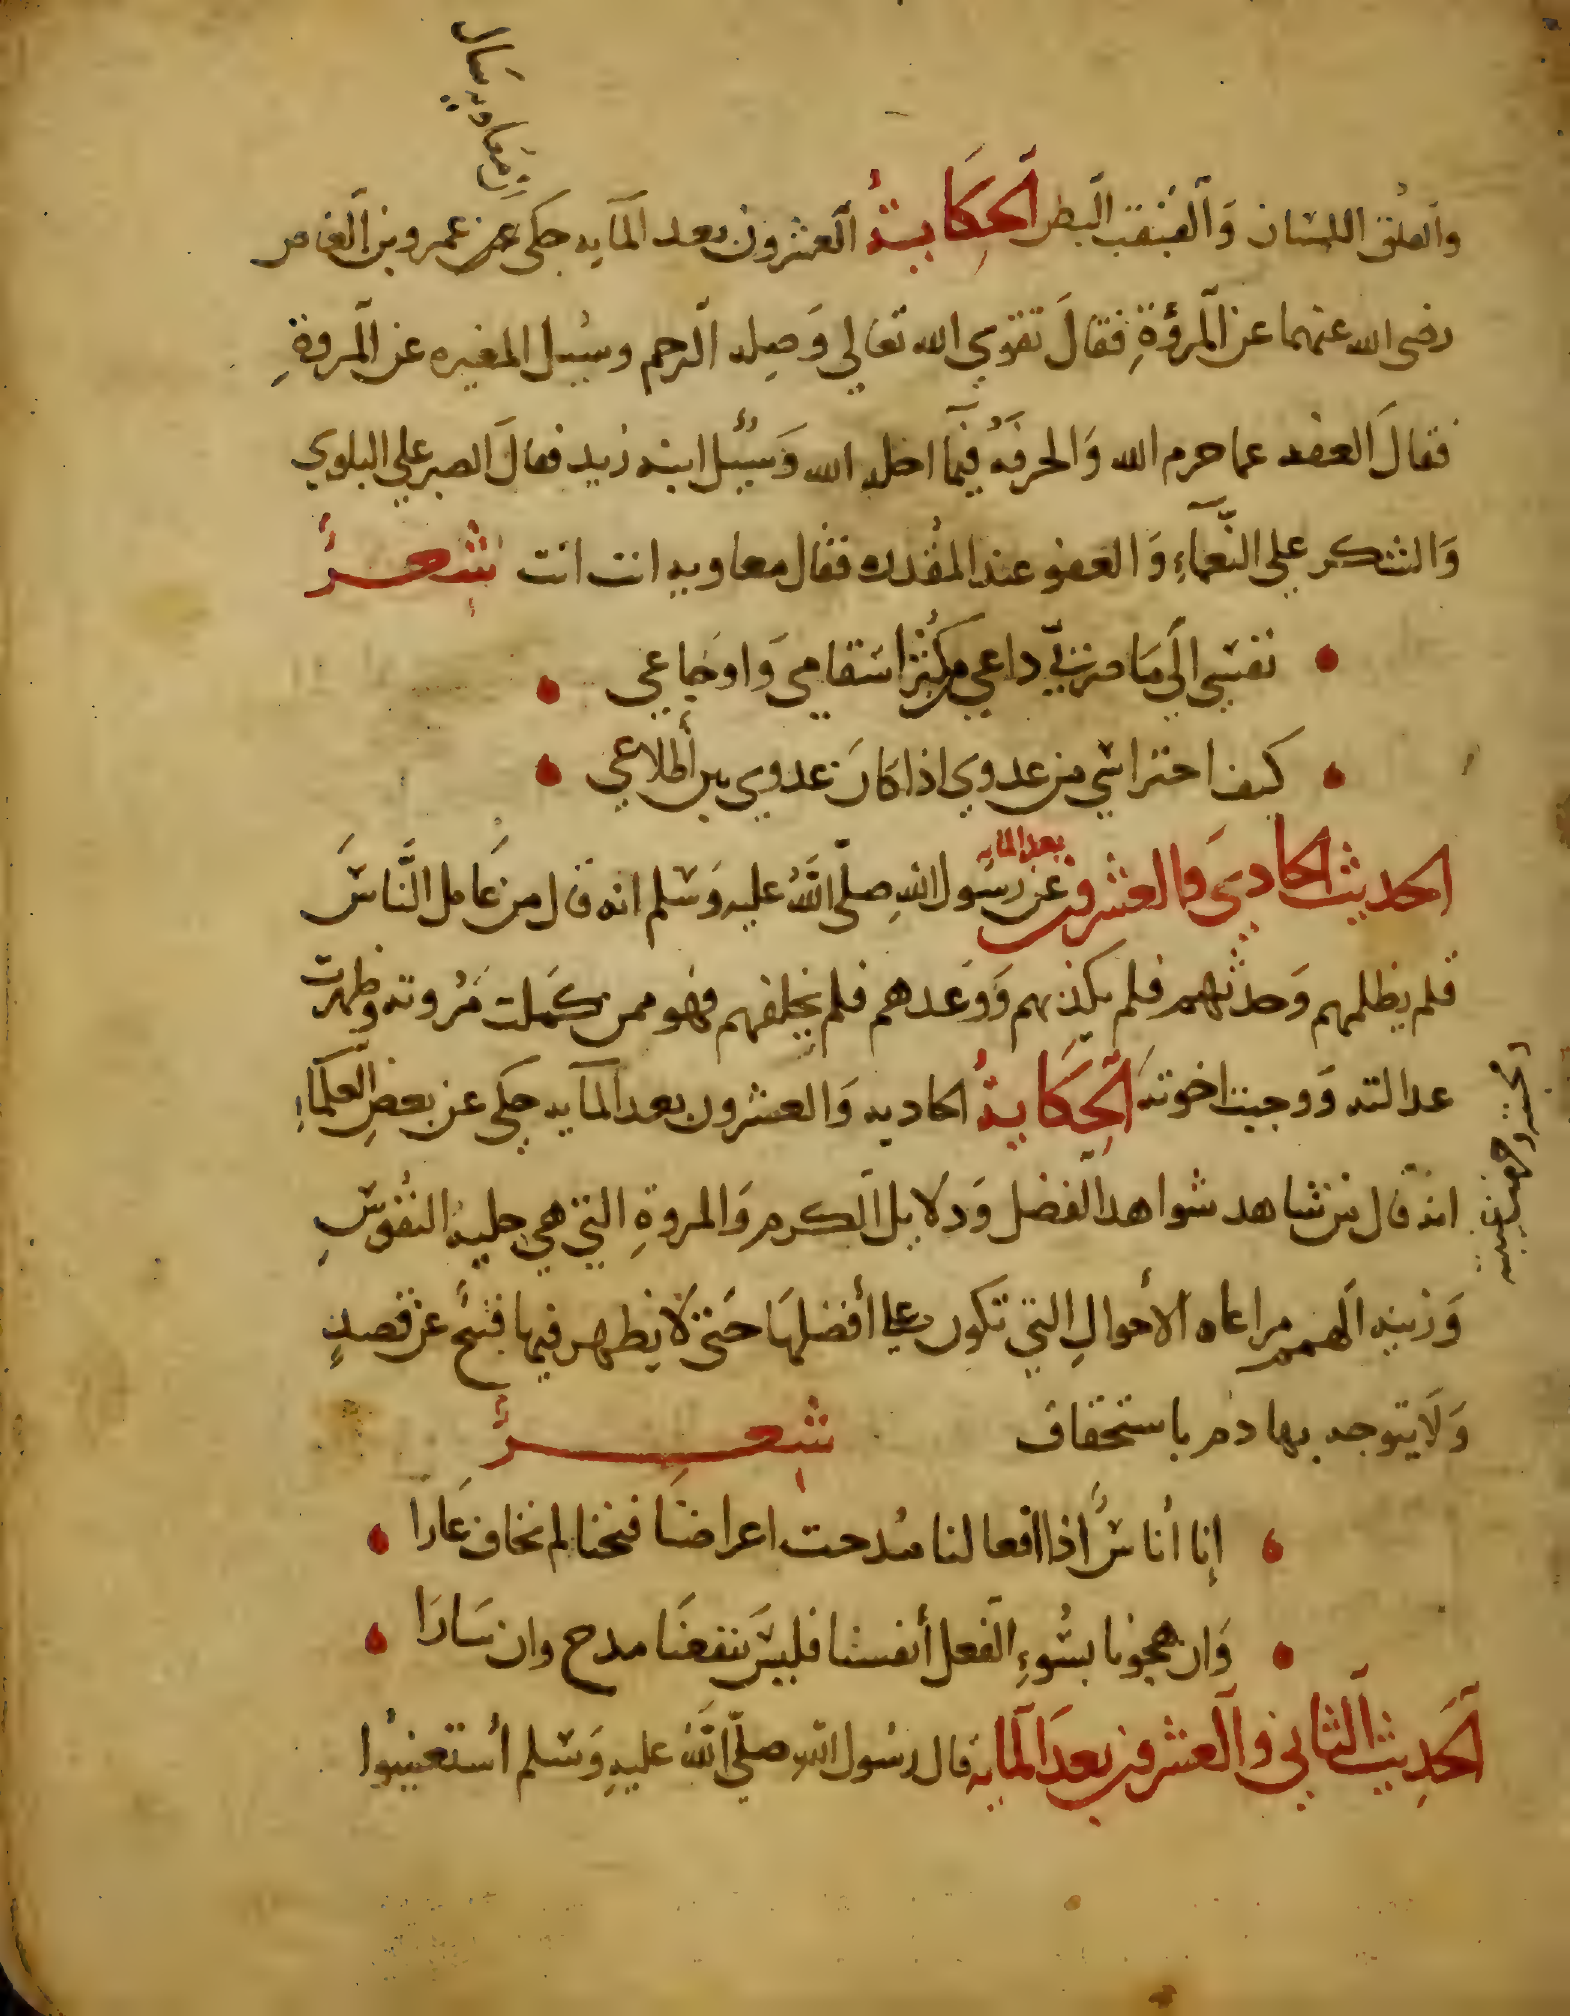 معاوية سال
واللقلق اللسان وَالقبقب البطن الحِكَايةُ العشرون بعد المايه حكى عن عمرو بن العَاص
رضى الله عنهما عن المرؤةِ فقالَ تقوي الله تعالي وَصِله الرحم وسُيل المغيره عن المروةِ
فقالَ العفه عما حرم الله وَالحرفَه فيمَا احل الله وَسُيِل ابنه زيد فقال الصبر علي البلوي
وَالشكر علي النّعمَآءِ وَالعفو عند المقُدره فقال معاويه انت انت شِعرٌ
نفسي الَي مَا ضرني داعي يُكثر اسَقامي وَاوجَاعي
كيف احتراسي من عدوي اذا كانَ عدوي بين أضلاعي
الحديث الحادي وَالعشرون بعد المايه عن رسُول اللهِ صلّى اللهُ عليه وَسَلم انه قال من عَامل النَّاسَ
فلم يظلمهم وَحدثهم فلم يكذبهم وَوَعدهم فلم يخلفهم فهُو ممن كَملت مَرُوته وَظهرت
عدالته وَوجبت اخوته الحِكَايةُ الحاديه وَالعشرون بعد المآيه حكَى عن بعضِ العلمَآءِ
وحرمت غيبته
انه قال من شاهد شواهد الفضل وَدلايل الكرم وَالمروةِ التي هي حليه النفُوسِ
وَزينه الهمم مراعاه الأحوالِ التي تكون علي أفضلهَا حَتى لَا يظهر فيها قبحٌ عن قصدٍ
وَلَا يتوجه بها ذم باستحقاق شِعِرٌ
إنا أناسٌ اذا افعالنا مُدحت اعراضنَا فنحنا لم نخاف عَارا
وَان هجونا بسُوءِ الفعل أنفسنا فليسَ ينفعنَا مدح وان سَارَا
الحَديث الثاني وَالعشرون بعدَ المايه قال رسُول اللهِ صلّى اللهُ عليهِ وَسَلم أستعينُوا